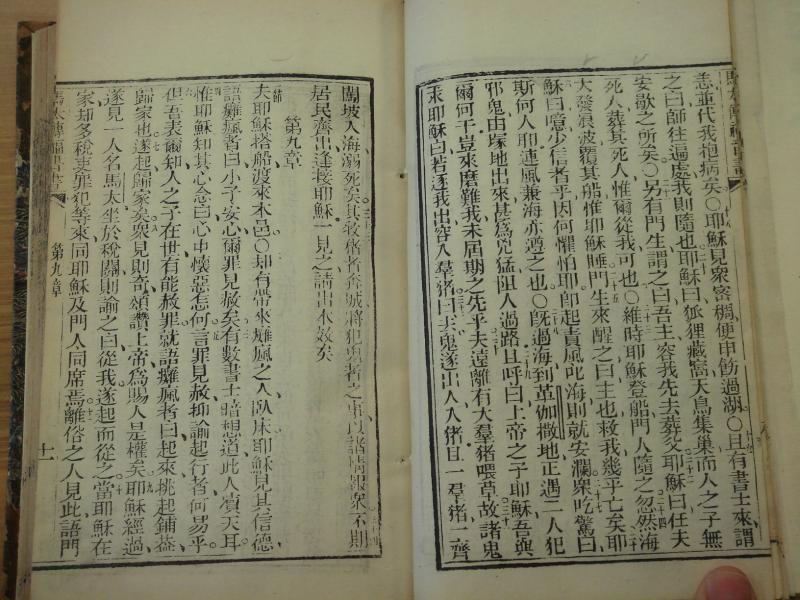 恙並代我抱病矣〇耶穌見眾密稠便申飭過湖〇且有書士來謂
之曰師往遍處我則隨也耶穌曰狐狸藏窩天鳥集巢而人之子無
安歇之所矣〇另有門生謂之曰吾主容我先去葬父耶穌曰任夫
死人葬其死人惟爾從我可也〇維時耶穌登船門人隨之忽然海
大發浪波覆其船惟耶穌睡門生來醒之曰主也救我幾乎亡矣耶
穌曰噫少信者乎因何懼怕耶即起責風叱海則就安瀾眾吃驚曰
斯何人耶連風兼海亦遵之也〇既過海到革伽撒地正遇二人犯
邪鬼由塚地出來甚為兇猛阻人過路且呼曰上帝之子耶穌吾與
爾何干豈來磨難我未屆期之先乎夫遠離有大羣猪喂草故諸鬼
求耶穌曰若逐我出容入羣猪曰去鬼遂出人入猪且一羣猪齊
闖坡入海溺死矣其牧猪者奔城將犯鬼者之事以諸情報眾不期
居民齊出逢接耶穌一見之請出本效矣
第九章
夫耶穌搭船渡來本邑〇却有帶來癱瘋之人臥床耶穌見其信德
語癱瘋者曰小子安心爾罪見赦矣有數書士暗想道此人瀆天耳
惟耶穌知其心念曰心中懷惡怎何言罪見赦抑諭起行者何易乎
但吾表爾知人之子在世有能赦罪就語癱瘋者曰起來挑起鋪蓋
歸家也遂起歸家矣眾見則奇頌讚上帝為賜人是權矣耶穌經過
遂見一人名馬太坐於稅關則諭之曰從我遂起而從之當耶穌在
家却多稅吏罪犯等來同耶穌及門人同席焉離俗之人見此語門
馬太傳福音書 第九章 十一